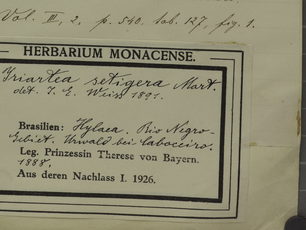 Vol. III, 2, p. 540. tab. 127, fig. 1.
HERBARIUM MONACENSE.
Iriartea setigera Mart.
det. J. E. Weiss 1891.
Brasilien: Hylaea. Rio Negro-
Gebiet. Urwald bei Caboceiro.
Leg. Prinzessin Therese von Bayern.
1888.
Aus deren Nachlass I. 1926.